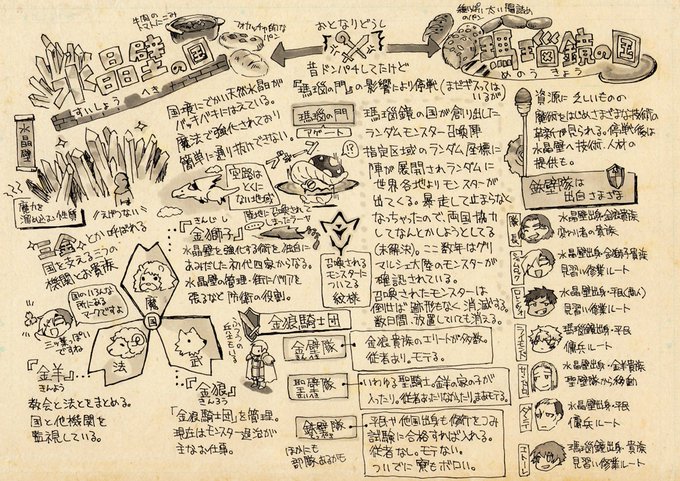 牛肉の
にこみ
フォカッチャ的な
パン
水晶壁の国
すいしょう へき
おとなりどうし
細長い太い
のパン
瑪瑙鏡の国
めのう きょう
昔ドンパチしてたけど
『瑪瑙の門』の影響により停戦(まぜぎスってはいるが)
水晶壁
国境にでかい天然水晶が
バッキバキにはえている。
魔法で強化されており
簡単に通り抜けできない。
魔力を
溜め込む性質
えげつない
空路は
とくに
ない地域
陸地に召喚され
しまったシャチ
!?
瑪瑙の門
アゲート
瑪瑙鏡の国が創り出した
ランダムモンスター召喚陣
指定区域のランダム座標に
陣が展開されランダムに
世界各地よりモンスターが
出てくる。暴走して止まらなく
なっちゃったので、両国協力
してなんとかしようとしてる
(未解決)。ここ数年はグリ
マルシェ大陸のモンスターが
確認されている。
召喚されたモンスターは
倒せば跡形もなく消滅する。
数日間放置していても消える。
召喚される
モンスターに
ついてる
紋様
資源に乏しいものの
魔術をはじめさまざまな技術の
革新が見られる。停戦後は
水晶壁へ技術、人材の
提供も。
鉄壁隊は
出自さまざま
隊長
水晶壁出身・金狼貴族
変わり者の貴族
水晶壁出身・金獅子貴族
見習い修業ルート
水晶壁出身・平民(商人)
見習い修業ルート
瑪瑙鏡出身・平民
傭兵ルート
水晶壁出身・金羊貴族
聖壁隊から移動
水晶壁出身・平民
傭兵ルート
エトーレ
瑪瑙鏡出身・貴族
見習い修業ルート
三金とか呼ばれる
国を支える三つの
機関とお貴族
国のいろんな
所にある
マークですよ
三ツ葉っぽい
ですね
魔
国
法
武
きんじし
『金獅子』
水晶壁を強化する術を独自に
あみだした初代四家からなる。
水晶壁の管理・街にバリアを
張るなど防衛の役割。
『金羊』
きんよう
教会と法とをまとめる。
国と他機関を
監視している。
『金狼』
きんろう
「金狼騎士団」を管理。
現在はモンスター退治が
主なお仕事。
金狼騎士団
金壁隊
金狼貴族のエリートが多数。
従者あり。モテる。
聖壁隊
いわゆる聖騎士。金羊の家の子が
入ったり。従者あったりなかったり。まあモテる。
鉄壁隊
平民や他国出身も傭兵でつのみ
試験に合格すれば入れる。
従者なし。モテない。
ついでに寮もボロい。
ほかにも
部隊あるかも